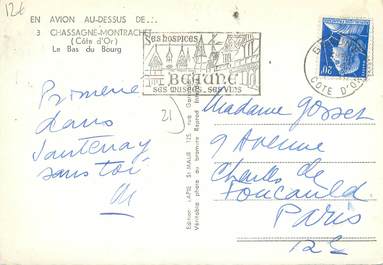 12€
EN AVION AU-DESSUS DE...
3 CHASSAGNE-MONTRACHET
(Côte d'Or)
Le Bas du Bourg
Ses hospices
BEAUNE
ses musées, ses vins
20F
COTE D'OR
21
dans
Santenay
sans toi
Edition LAPIE St-MAUR 125, rue
Véritable photo au bromure
Madame Gosset
9 Avenue
Charles de
Foucauld
Paris
12e